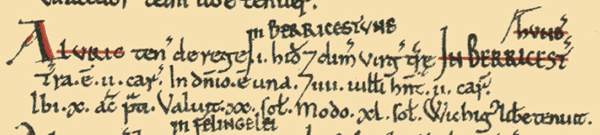 IN BERRICESTUNE HUND'
ALURIC ten' de rege . I . hid' 7 dim' virg' t're IN BERRICEST'
T'ra . ē . II . car' . In dn̄io . ē una . 7 IIII . uilli hn̄t . II . car' .
Ibi . X . ac' p'ti . Valuit . XX . sol' . Modo . XL . sol' . Wichig' libe tenuit .
IN FELINGELEI